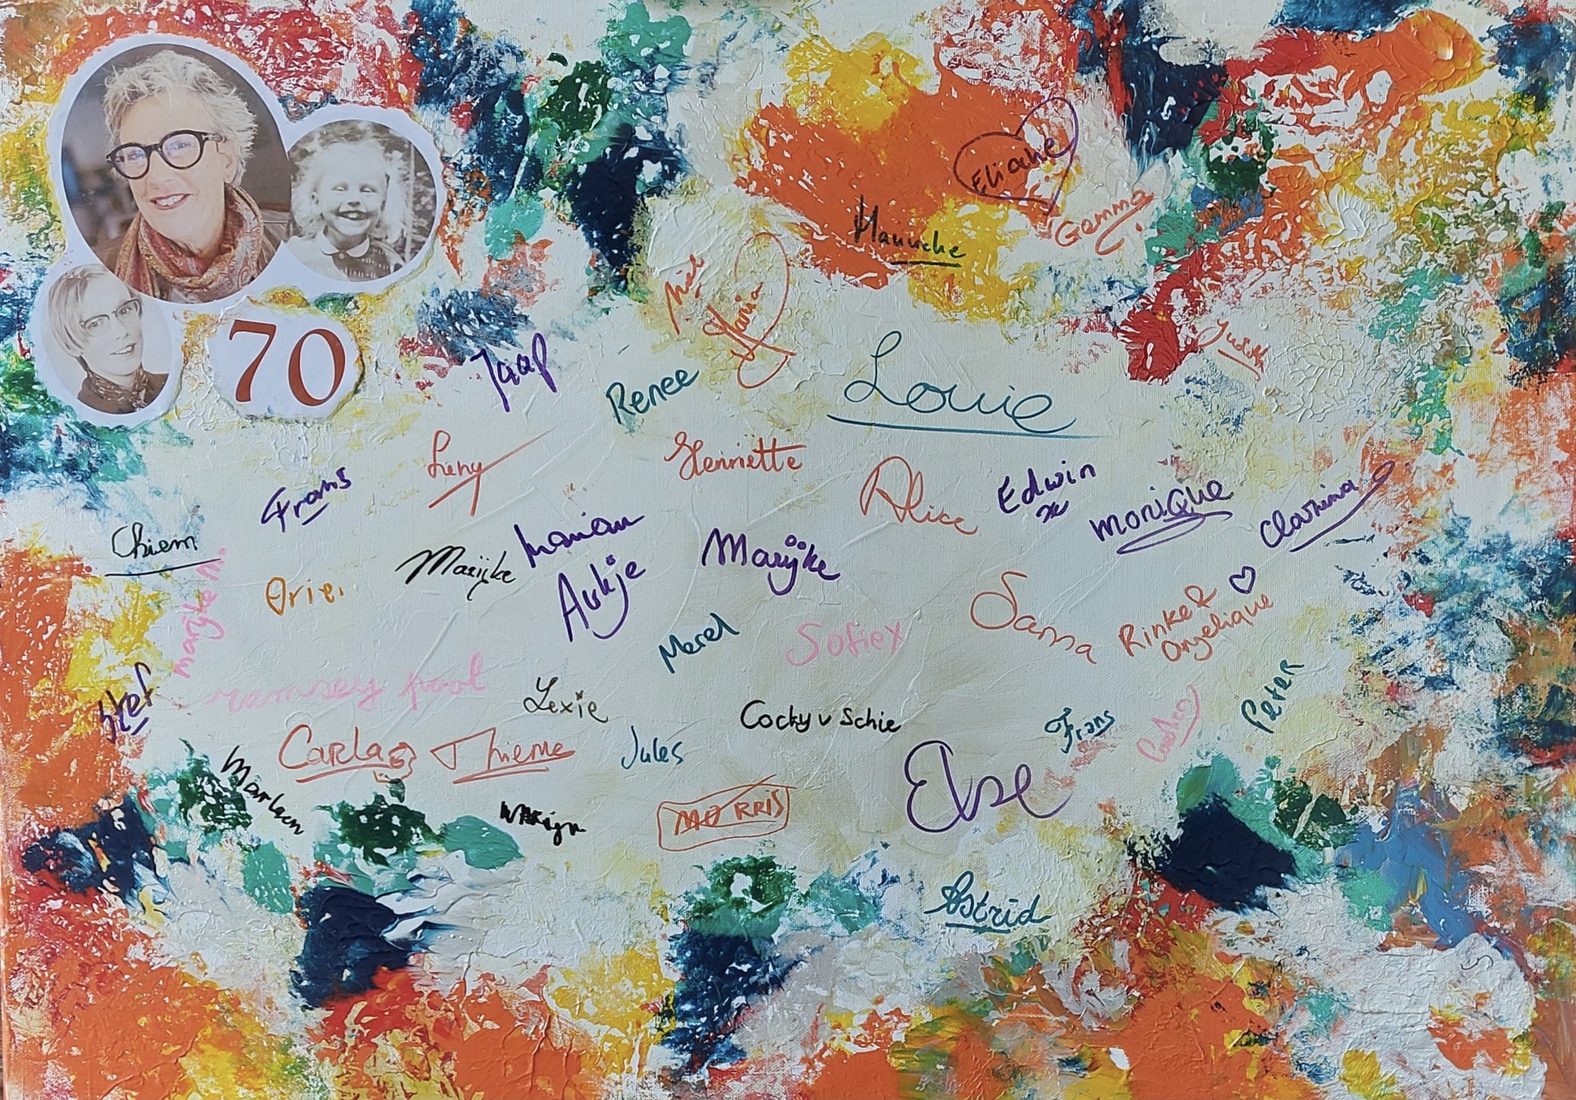 Eliane
Gemma
Hanneke
Maria
70
Judith
Jaap
Renee
Louie
Leny
Henriette
Alice
Edwin
Monique
Clarina
Frans
Chiem
Marijke
Marian
Aukje
Marijke
Marijke n.
Sanna
Rinke &
Angelique
Merel
Sofie x
Stef
ramsey
Lexie
Cocky v Schie
Frans
Peter
Carla
Thieme
Jules
Else
Marleen
MORRIS
Astrid